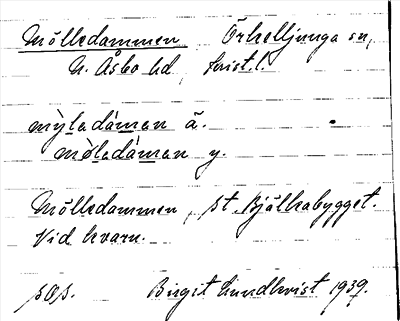 Mölledammen, Örkelljunga sn,
N. Åsbo hd, Krist. l.
mỳladáman ä.
mø̀ladáman y.
Mölledammen, st. Bjälkabygget.
Vid kvarn.
Birgit Lundkvist 1939.